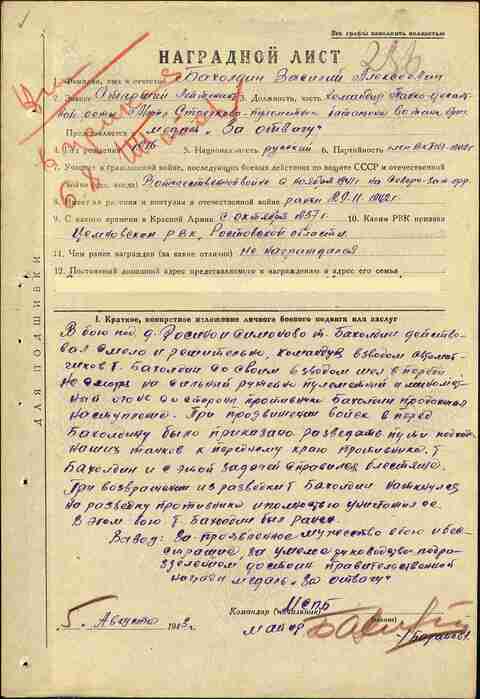 Все графы заполнять полностью
НАГРАДНОЙ ЛИСТ
1. Фамилия, имя и отчество Бахолдин Василий
2. Звание Старший Лейтенант 3. Должность, часть командир
Мото Стрелково-пулеметного батальона
Представляется к медаль „За отвагу"
4. Год рождения 5. Национальность русский 6. Партийность член ВКП(б)
7. Участие в гражданской войне, последующих боевых действиях по защите СССР и отечественной
войне (где, когда) В отечественной войне с ноября 1941 г на
8. Имеет ли ранения и контузии в отечественной войне ранен
9. С какого времени в Красной Армии с октября 1937 г. 10. Каким РВК призван
РВК, Ростовской области
11. Чем ранее награжден (за какие отличия) Не награждался
12. Постоянный домашний адрес представляемого к награждению и адрес его семьи
ДЛЯ ПОДШИВКИ
I. Краткое, конкретное изложение личного боевого подвига или заслуг
В бою под д. и Симоново т. Бахолдин действо-
вал смело и решительно, командуя взводом автомат-
чиков т. Бахолдин со своим взводом шел в перед
не смотря на сильный пулеметный и миномет-
ный огонь со стороны противника Бахолдин продолжал
наступление. При продвижении войск в перед
Бахолдину было приказано разведать пути подхода
наших танков к переднему краю противника. Т
Бахолдин и с этой задачей справился блестяще.
При возвращении из разведки т Бахолдин наткнулся
на разведку противника и полностью уничтожил ее.
В этом бою т. Бахолдин был ранен.
Вывод: За проявленное мужество в бою и
за умелое руководство подра-
зделением достоин правительственной
награды медаль „За отвагу"
Командир (начальник) МСПБ
майор
5 Августа 1942 г.